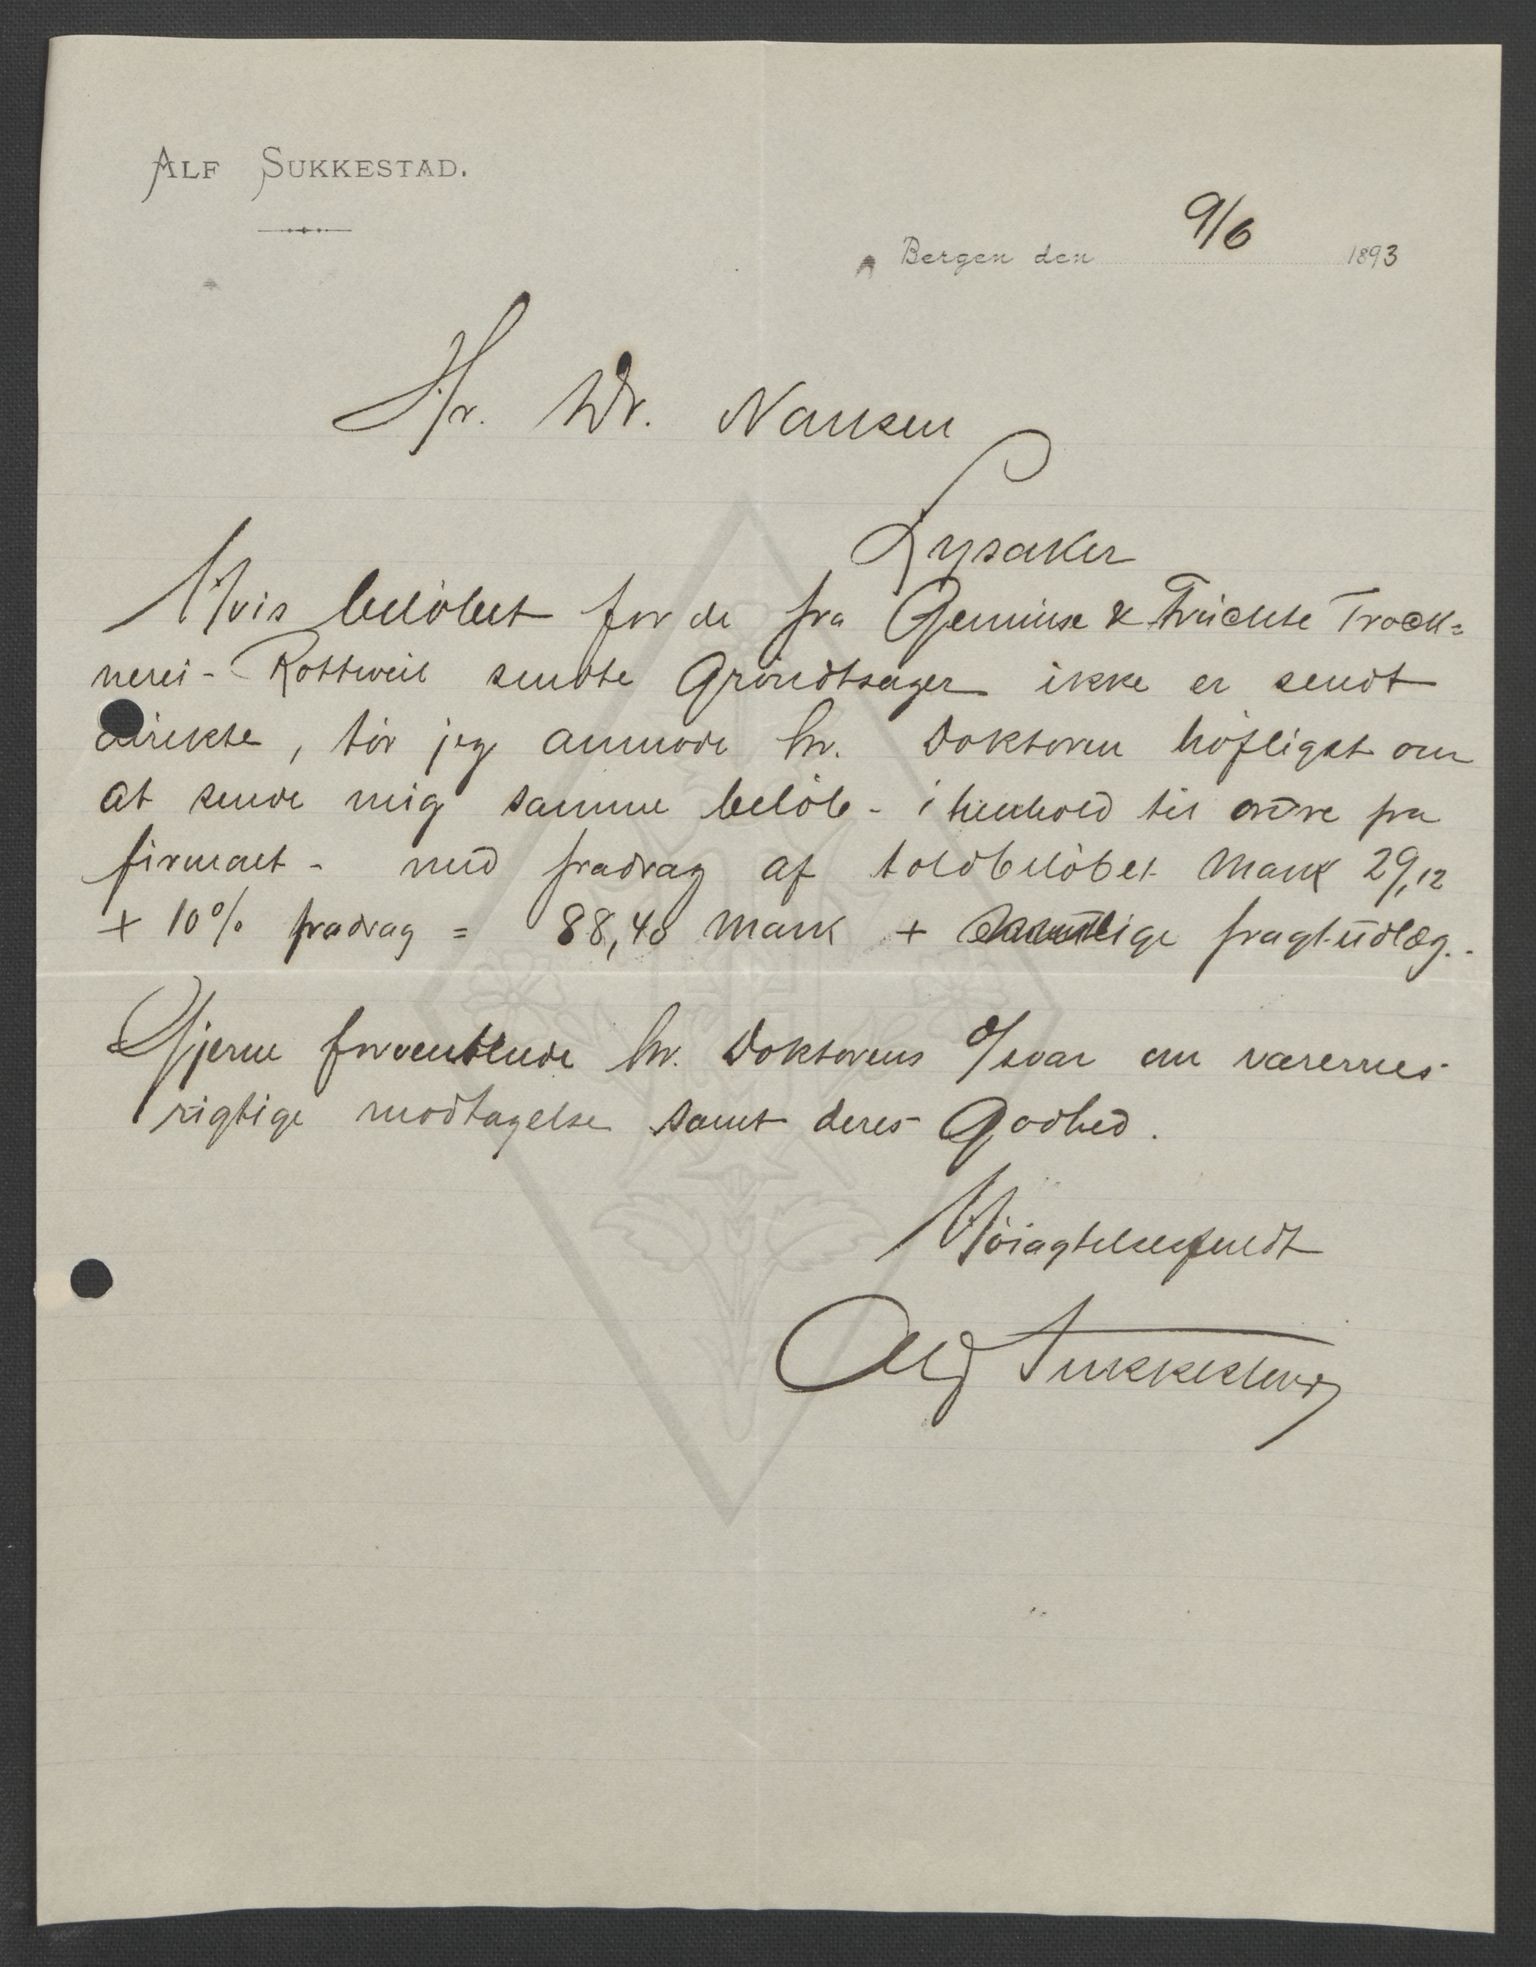 ALF SUKKESTAD.
Bergen den 9/6 1893
Hr. Dr. Nansen
Lysaker
Hvis belöbet for de fra Gemüse & Früchte Trock=
nerei - Rottweil sendte Gröndtsager ikke er sendt
direkte, tör jeg anmode hr. Doktoren höfligst om
at sende mig samme belöb - i henhold til ordre fra
firmaet - med fradrag af toldbelöbet Mark 29,12
+ 10% fradrag = 88,40 Mark + samtlige fragtudlæg.-
Gjerne forventende hr. Doktorens o/svar om varernes
rigtige modtagelse samt deres Godhed.
Höiagtelsesfuldt
Alf Sukkestad